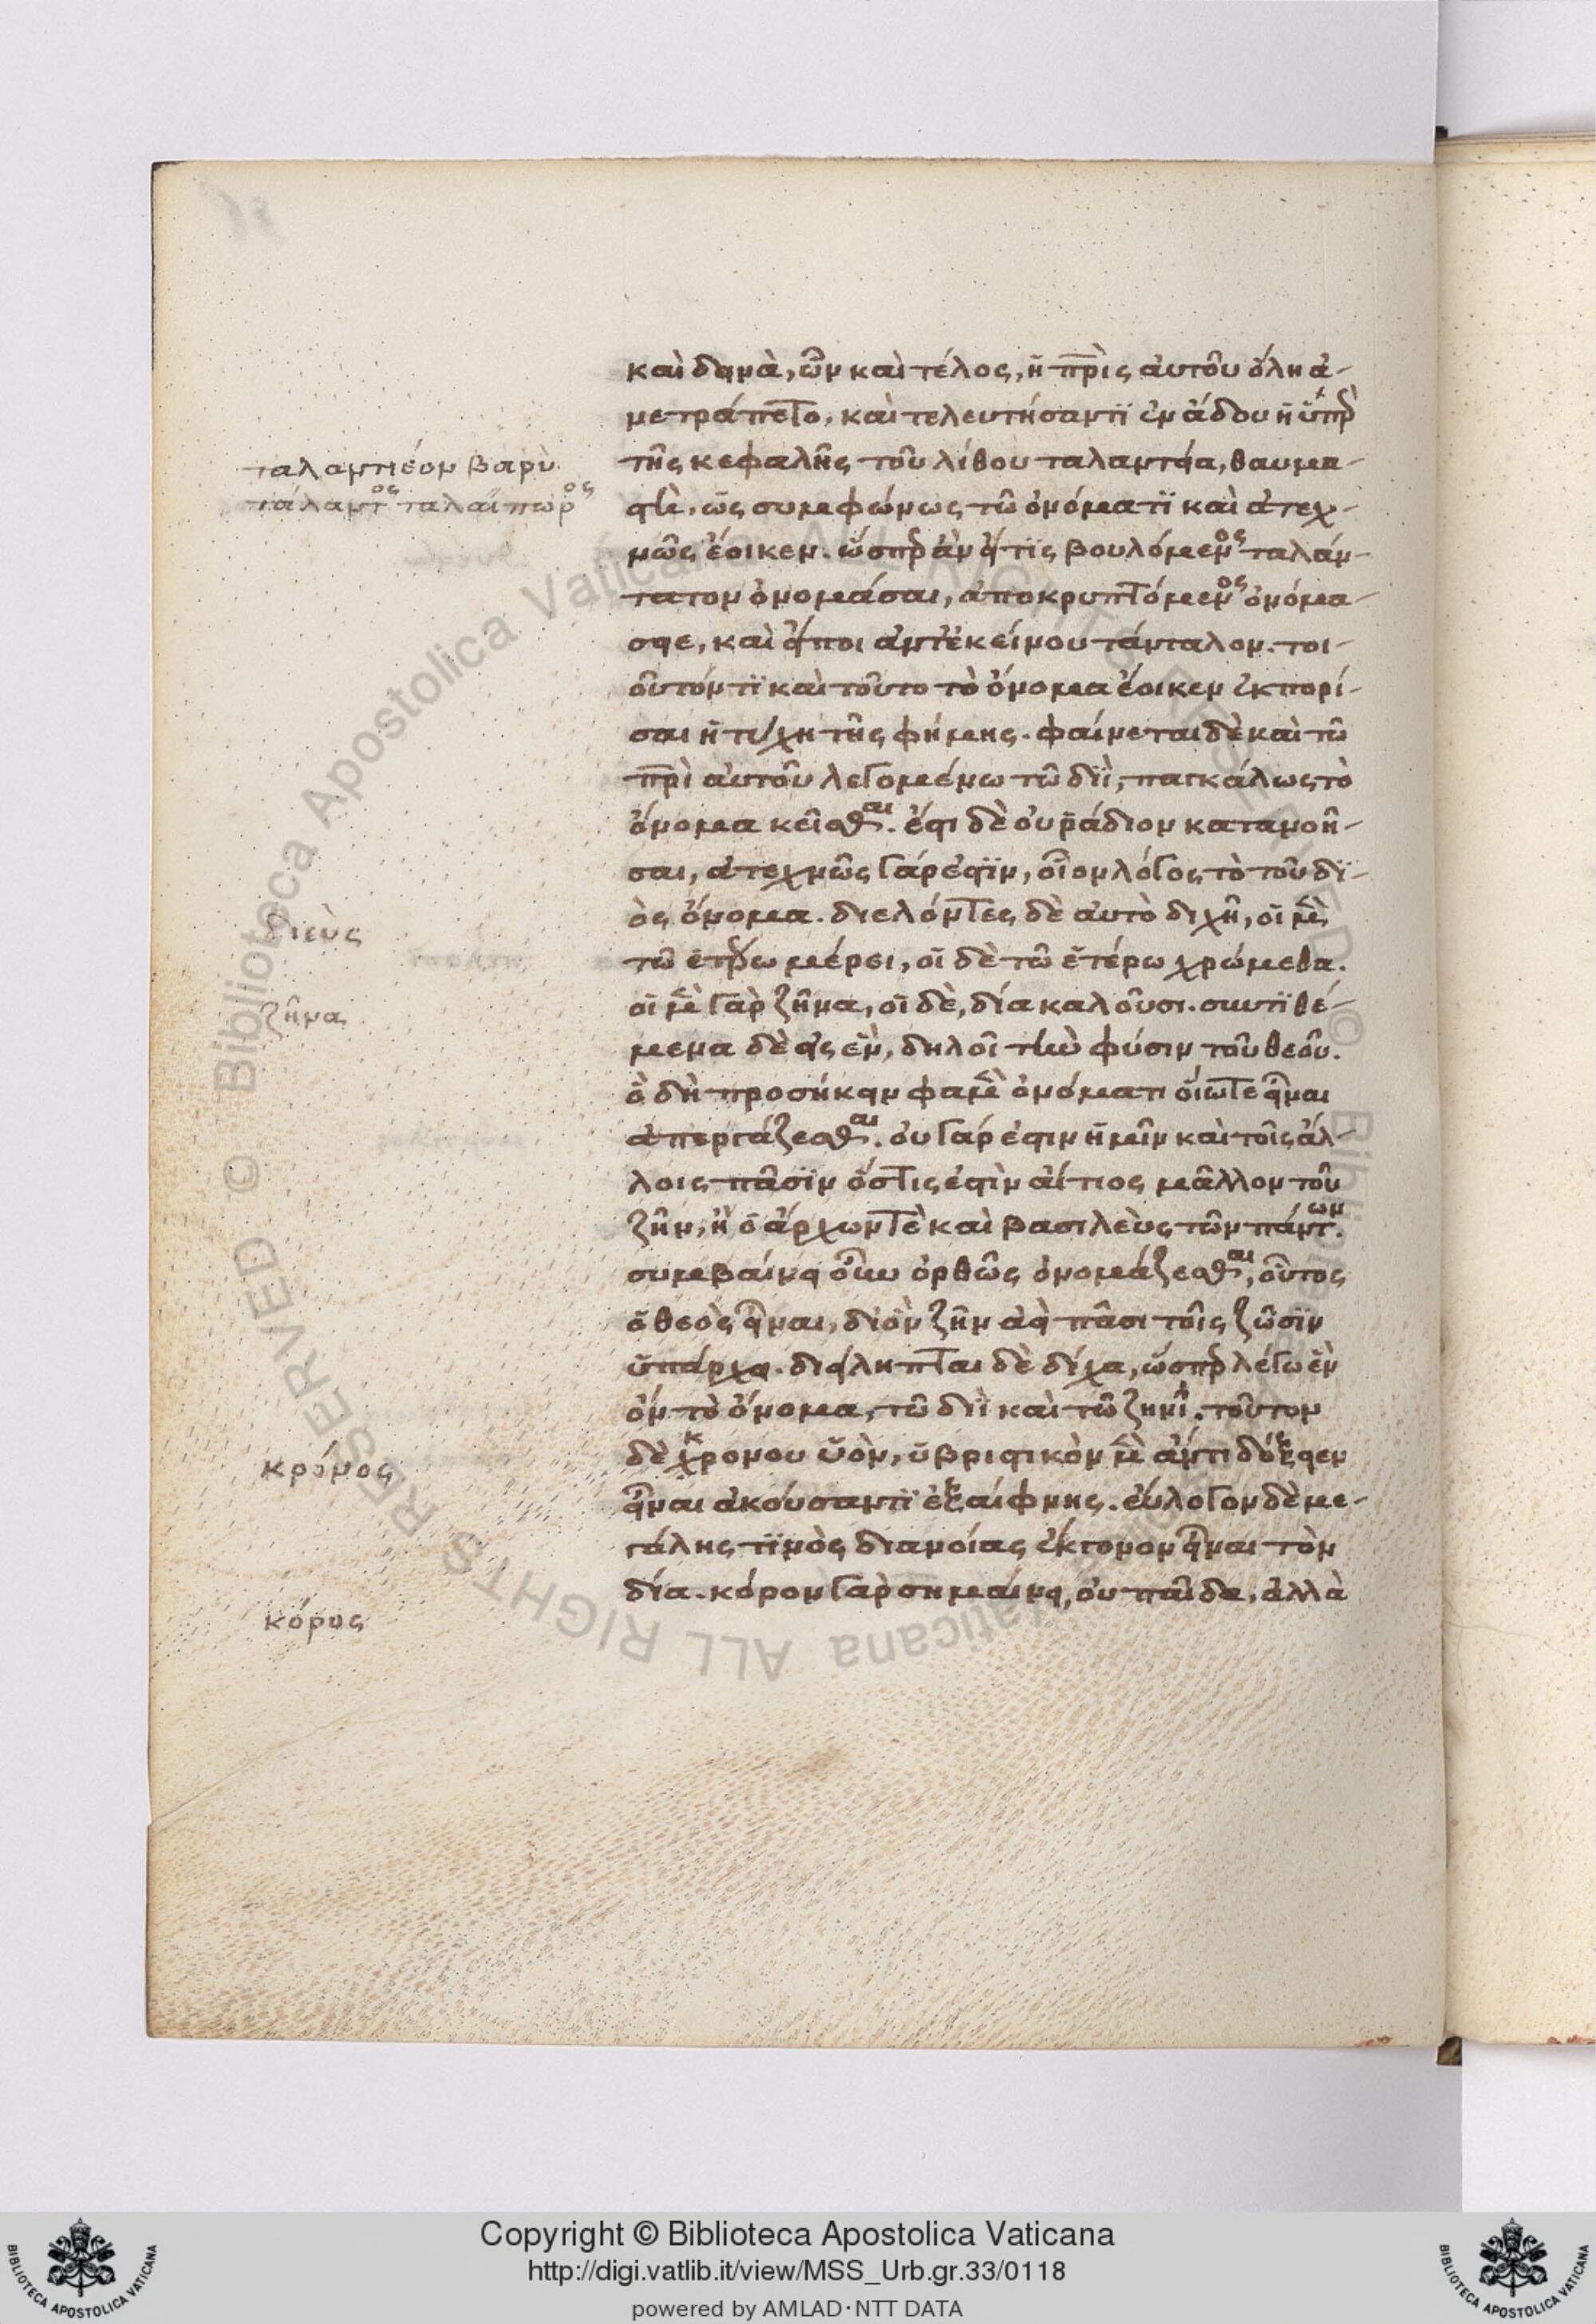 καὶ δεινὰ, ὧν καὶ τέλος, ἡ πρὶς αὐτοῦ ὅλη ἀ-
νετράπετο, καὶ τελευτήσαντι ἐν ἅδου ἡ ὑπὲρ
ταλαντιέον βαρὺ
τάλαντος ταλαίπωρος
τῆς κεφαλῆς τοῦ λίθου ταλαντεία, θαυμα-
στὴ, ὡς συμφώνως τῶ ὀνόματι καὶ ἀτεχ-
νῶς ἔοικεν. ὥσπερ ἂν εἴ τις βουλόμενος ταλάν-
τατον ὀνομάσαι, ἀποκρυπτόμενος ὀνόμα-
σειε, καὶ εἴποι ἀντ' ἐκείνου τάνταλον. τοι-
οῦτόν τι καὶ τοῦτο τὸ ὄνομα ἔοικεν ἐκπορί-
σαι ἡ τύχη τῆς φήμης. φαίνεται δὲ καὶ τῶ
πρὶ αὐτοῦ λεγομένω τῶ διὶ, παγκάλως τὸ
ὄνομα κεῖσθαι. ἔστι δὲ οὐ ῥάδιον κατανοῆ-
σαι, ἀτεχνῶς γάρ ἐστιν, οἷον λόγος τὸ τοῦ δι-
ὸς ὄνομα. διελόντες δὲ αὐτὸ διχῆ, οἱ μὲν
διεὺς
τῶ ἑτέρω μέρει, οἱ δὲ τῶ ἑτέρω χρώμεθα.
οἱ μὲν γὰρ ζῆνα, οἱ δὲ, δία καλοῦσι. συντιθέ-
ζῆνα
μενα δὲ εἰς ἓν, δηλοῖ τὴν φύσιν τοῦ θεοῦ.
ὃ δὴ προσήκειν φαμὲν ὀνόματι οἵωτε εἶναι
ἀπεργάζεσθαι. οὐ γάρ ἐστιν ἡμῖν καὶ τοῖς ἄλ-
λοις πᾶσιν ὅστις ἐστὶν αἴτιος μᾶλλον τοῦ
ζῆν, ἢ ὁ ἄρχων τὲ καὶ βασιλεὺς τῶν πάντων.
συμβαίνει οὖν ὀρθῶς ὀνομάζεσθαι, οὗτος
ὁ θεὸς εἶναι, δι' ὃν ζῆν ἀεὶ πᾶσι τοῖς ζῶσιν
ὑπάρχει. διείληπται δὲ δίχα, ὥσπερ λέγω ἓν
ὂν τὸ ὄνομα, τῶ διὶ καὶ τῶ ζηνί. τοῦτον
δὲ κρονου ὑὸν, ὑβριστικὸν μὲν ἄν τι δόξειεν
κρόνος
εἶναι ἀκούσαντι ἐξαίφνης. εὔλογον δὲ με-
γάλης τινὸς διανοίας ἔκγονον εἶναι τὸν
δία. κόρον γὰρ σημαίνει, οὐ παῖδα, ἀλλὰ
κόρος
Copyright © Biblioteca Apostolica Vaticana
http://digi.vatlib.it/view/MSS_Urb.gr.33/0118
powered by AMLAD·NTT DATA